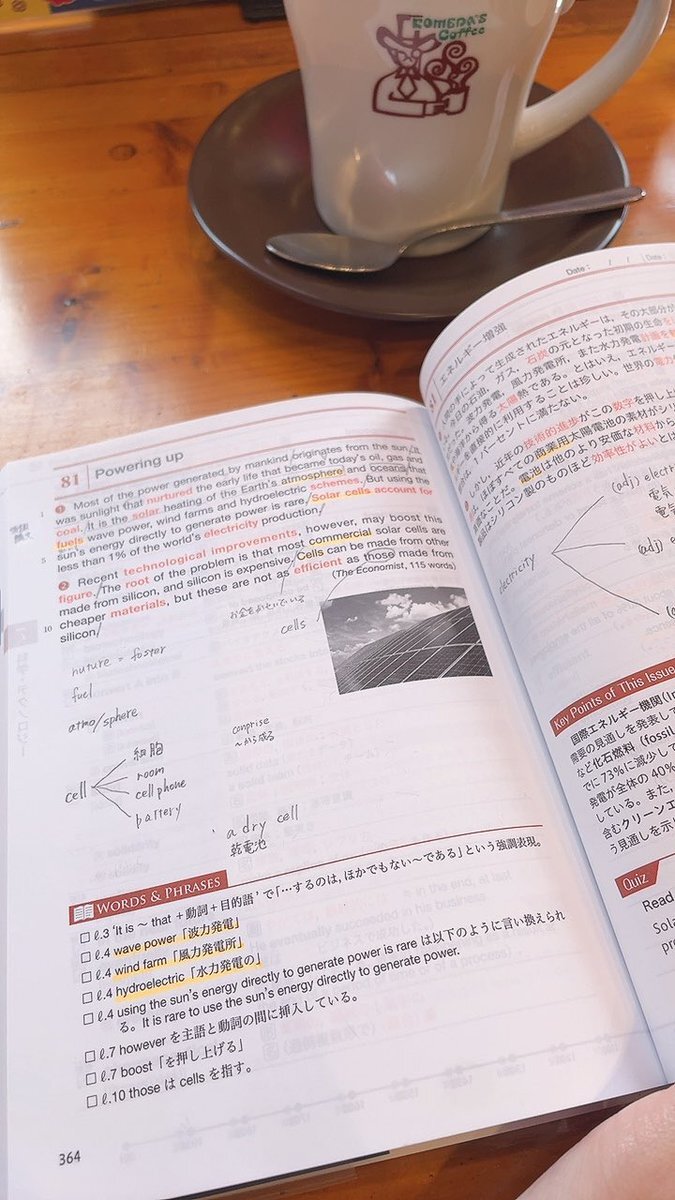 KOMEDA'S
Coffee
Date : / /
Date :
81 Powering up
❶ Most of the power generated by mankind originates from the sun. It
was sunlight that nurtured the early life that became today's oil, gas and
coal. It is the solar heating of the Earth's atmosphere and oceans that
fuels wave power, wind farms and hydroelectric schemes. But using the
sun's energy directly to generate power is rare. Solar cells account for
less than 1% of the world's electricity production.
❷ Recent technological improvements, however, may boost this
figure. The root of the problem is that most commercial solar cells are
made from silicon, and silicon is expensive. Cells can be made from other
cheaper materials, but these are not as efficient as those made from
silicon.
(The Economist, 115 words)
1
5
10
お金をかせいでいる
cells
nuture = foster
fuel
atmo/sphere
cell
細胞
room
cell phone
battery
conprise
~から成る
a dry cell
乾電池
WORDS & PHRASES
□ ℓ.3 'It is ~ that + 動詞 + 目的語' で「…するのは, ほかでもない~である」という強調表現。
□ ℓ.4 wave power「波力発電」
□ ℓ.4 wind farm「風力発電所」
□ ℓ.4 hydroelectric「水力発電の」
□ ℓ.4 using the sun's energy directly to generate power is rare は以下のように言い換えられ
る。It is rare to use the sun's energy directly to generate power.
□ ℓ.7 however を主語と動詞の間に挿入している。
□ ℓ.7 boost「を押し上げる」
□ ℓ.10 those は cells を指す。
364
エネルギー増強
によって生成されたエネルギーは、その大部分が
今日の石油、ガス、石炭の元となった初期の生命を
波力発電、風力発電所、また水力発電計画を
海洋から得る太陽熱である。とはいえ、エネルギー
を直接的に利用することは珍しい。世界の電力
1パーセントに満たない。
しかし、近年の技術的進歩がこの数字を押し上げ
ほぼすべての商業用太陽電池の素材がシリ
高価なことだ。電池は他のより安価な材料から
シリコン製のものほど効率性がよいとは
electricity
(adj) electr
電気
(adj) e
電気
Key Points of This Issue
国際エネルギー機関(In
需要の見通しを発表して
など化石燃料(fossil
でに73%に減少して
発電が全体の40%
している。また、
含むクリーンエ
う見通しを示
Quiz
Read
Sola
pr